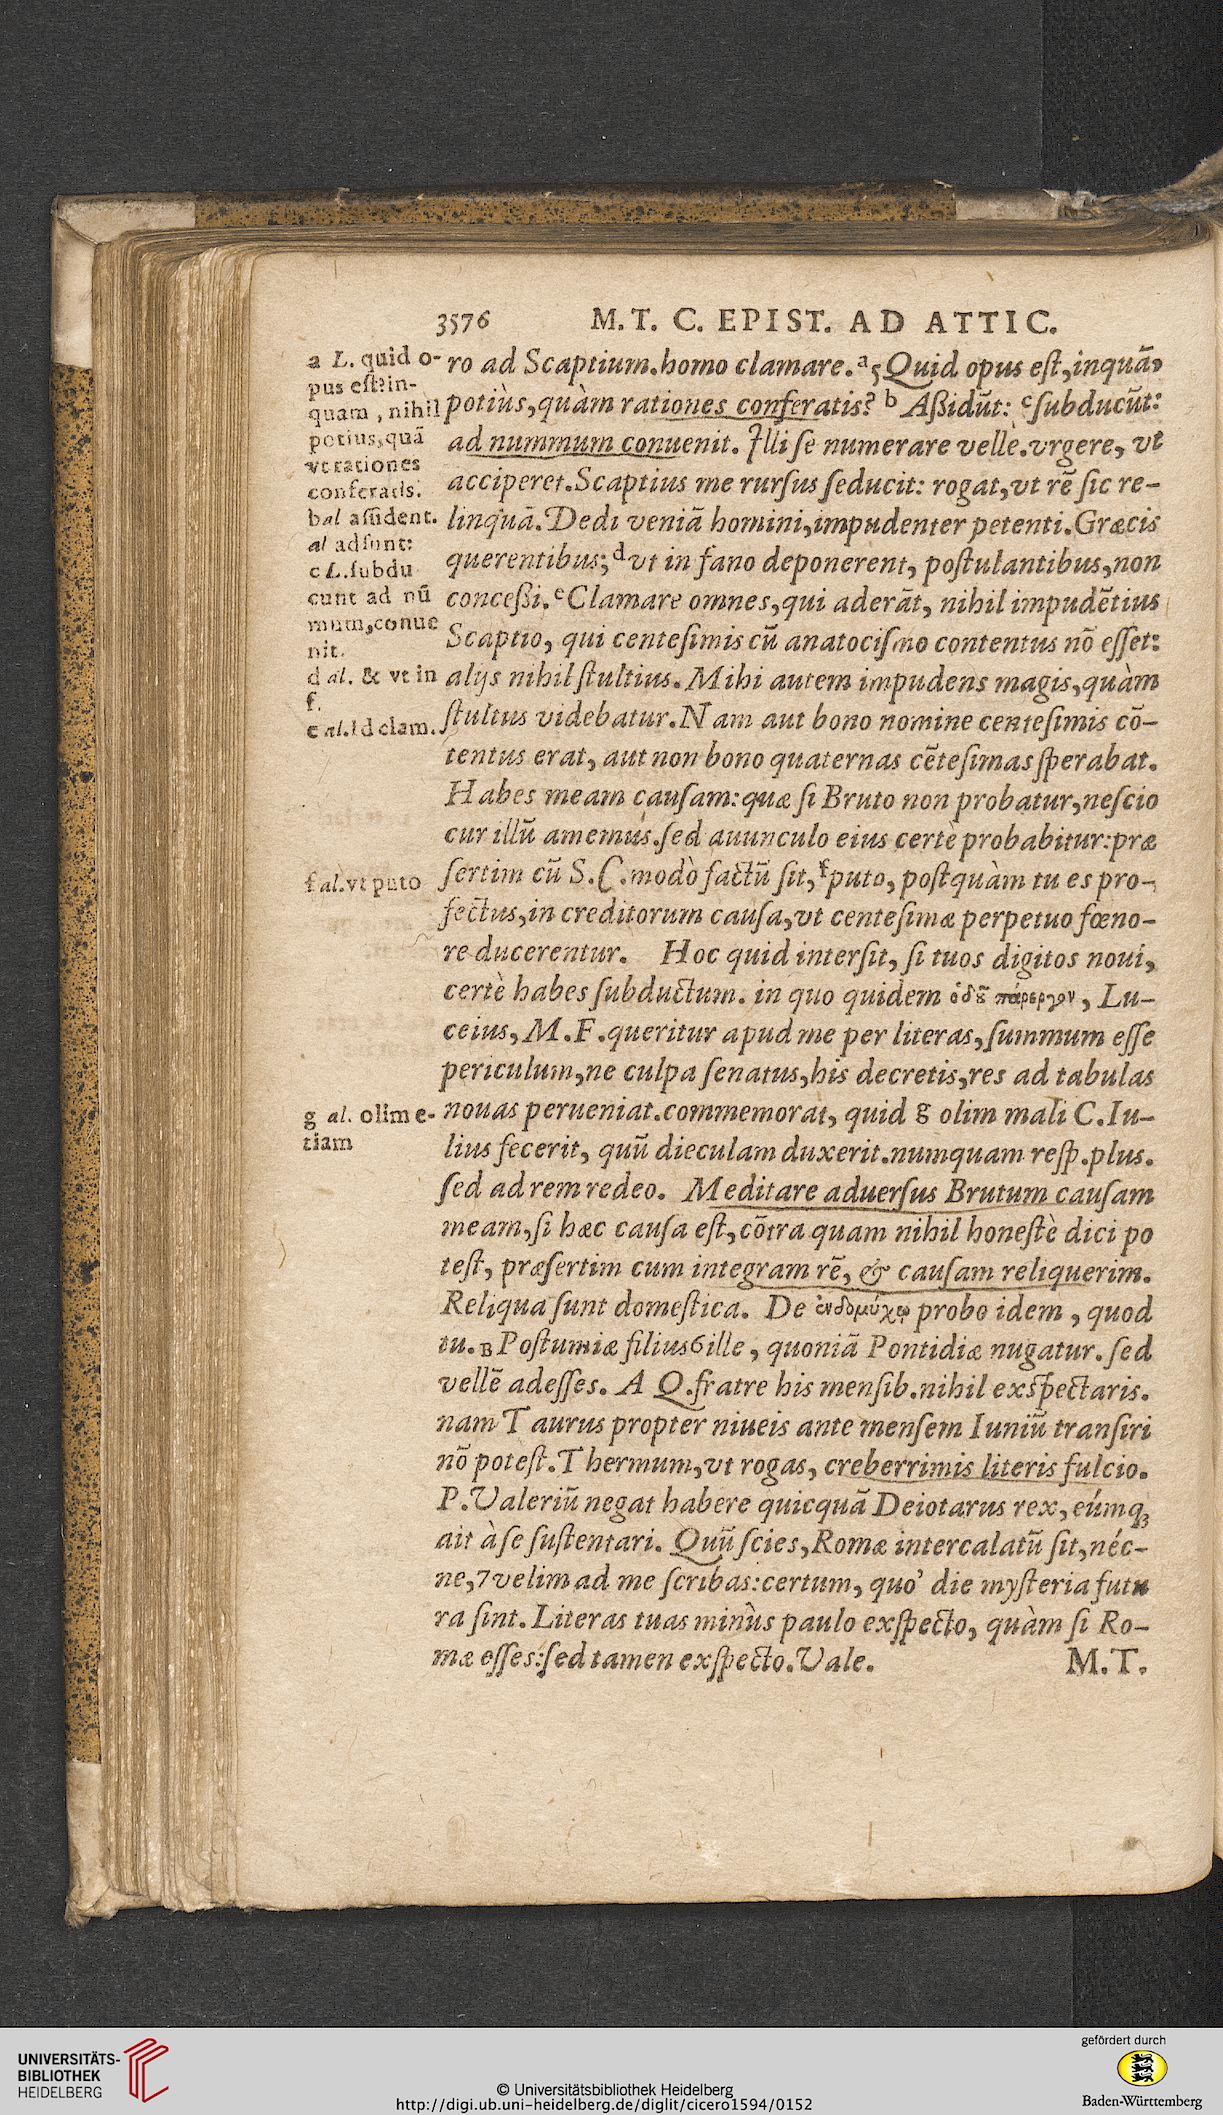 3576 M. T. C. EPIST. AD ATTIC.
ro ad Scaptium. homo clamare. ᵃ 5 Quid opus eſt, inquã,
potiùs, quàm rationes conferatis? ᵇ Aßidũt: ᶜ ſubducũt:
ad nummum conuenit. Illi ſe numerare velle. vrgere, vt
acciperet. Scaptius me rurſus ſeducit: rogat, vt rẽ ſic re-
linquã. Dedi veniã homini, impudenter petenti. Græcis
querentibus; ᵈ vt in fano deponerent, poſtulantibus, non
conceßi. ᵉ Clamare omnes, qui aderãt, nihil impudẽtius
Scaptio, qui centeſimis cũ anatociſmo contentus nõ eſſet:
alijs nihil ſtultius. Mihi autem impudens magis, quàm
ſtultus videbatur. Nam aut bono nomine centeſimis cõ-
tentus erat, aut non bono quaternas cẽteſimas ſperabat.
Habes meam cauſam: quæ ſi Bruto non probatur, neſcio
cur illũ amemus. ſed auunculo eius certè probabitur: præ
ſertim cũ S. C. modò factũ ſit, ᶠ puto, poſtquàm tu es pro-
fectus, in creditorum cauſa, vt centeſimæ perpetuo fœno-
re ducerentur. Hoc quid interſit, ſi tuos digitos noui,
certè habes ſubductum. in quo quidem ὁδȣ͂ πάρεργον, Lu-
ceius, M. F. queritur apud me per literas, ſummum eſſe
periculum, ne culpa ſenatus, his decretis, res ad tabulas
nouas perueniat. commemorat, quid g olim mali C. Iu-
lius fecerit, quũ dieculam duxerit. numquam reſp. plus.
ſed ad rem redeo. Meditare aduerſus Brutum cauſam
meam, ſi hæc cauſa eſt, cõtra quam nihil honeſtè dici po
teſt, præſertim cum integram rẽ, & cauſam reliquerim.
Reliqua ſunt domeſtica. De ἐνδομύχῳ probo idem, quod
tu. B Poſtumiæ filius 6 ille, quoniã Pontidiæ nugatur. ſed
vellẽ adeſſes. A Q. fratre his menſib. nihil exſpectaris.
nam Taurus propter niueis ante menſem Iuniũ tranſiri
nõ poteſt. Thermum, vt rogas, creberrimis literis fulcio.
P. Valeriũ negat habere quicquã Deiotarus rex, eúmq;
ait à ſe ſuſtentari. Quũ ſcies, Romæ intercalatũ ſit, néc-
ne, 7 velim ad me ſcribas: certum, quo' die myſteria futu
ra ſint. Literas tuas minùs paulo exſpecto, quàm ſi Ro-
mæ eſſes: ſed tamen exſpecto. Vale. M. T.
a L. quid o-
pus eſt? in-
quam, nihil
potius, quã
vt rationes
conferatis.
b al aſſident.
al adſunt:
c L. ſubdu
cunt ad nũ
mum, conue
nit.
d al. & vt in
f.
e al. Id clam.
f al. vt puto
g al. olim e-
tiam
UNIVERSITÄTS-
BIBLIOTHEK
HEIDELBERG
© Universitätsbibliothek Heidelberg
http://digi.ub.uni-heidelberg.de/diglit/cicero1594/0152
gefördert durch
Baden-Württemberg